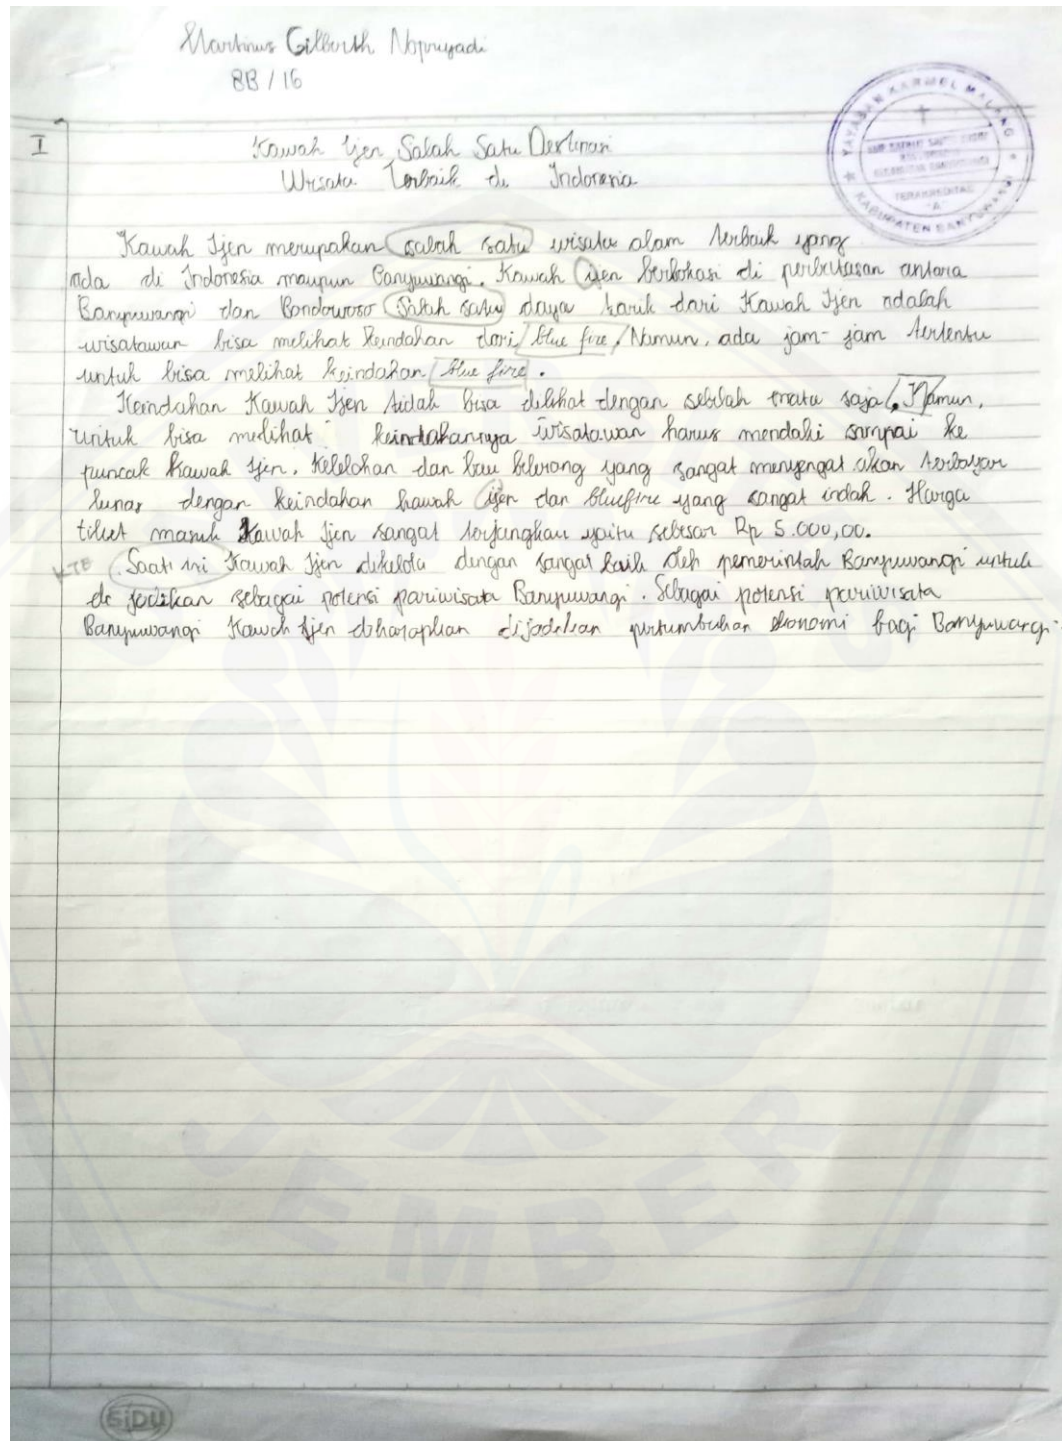 Martinus Gilberth Nopruyadi
8B / 16
YAYASAN KARMEL MALANG
TERAKREDITASI
"A"
KABUPATEN BANYUWANGI
I
Kawah Ijen Salah Satu Destinasi
Wisata Terbaik di Indonesia
Kawah Ijen merupakan salah satu wisata alam terbaik yang
ada di Indonesia maupun Banyuwangi. Kawah ijen berlokasi di perbatasan antara
Banyuwangi dan Bondowoso Salah satu daya tarik dari Kawah Ijen adalah
wisatawan bisa melihat Keindahan dari blue fire, Namun, ada jam-jam tertentu
untuk bisa melihat keindahan blue fire.
Keindahan Kawah Ijen tidak bisa dilihat dengan sebelah mata saja, Namun,
untuk bisa melihat keindahannya wisatawan harus mendaki sampai ke
puncak Kawah Ijen. Kelelahan dan bau belerang yang sangat menyengat akan terbayar
lunas dengan keindahan kawah ijen dan bluefire yang sangat indah. Harga
tiket masuk Kawah Ijen sangat terjangkau yaitu sebesar Rp 5.000,00.
KTE Saat ini Kawah Ijen dikelola dengan sangat baik oleh pemerintah Banyuwangi untuk
di jadikan sebagai potensi pariwisata Banyuwangi. Sebagai potensi pariwisata
Banyuwangi Kawah Ijen diharapkan dijadikan pertumbuhan ekonomi bagi Banyuwangi.
JEMBER
SiDU